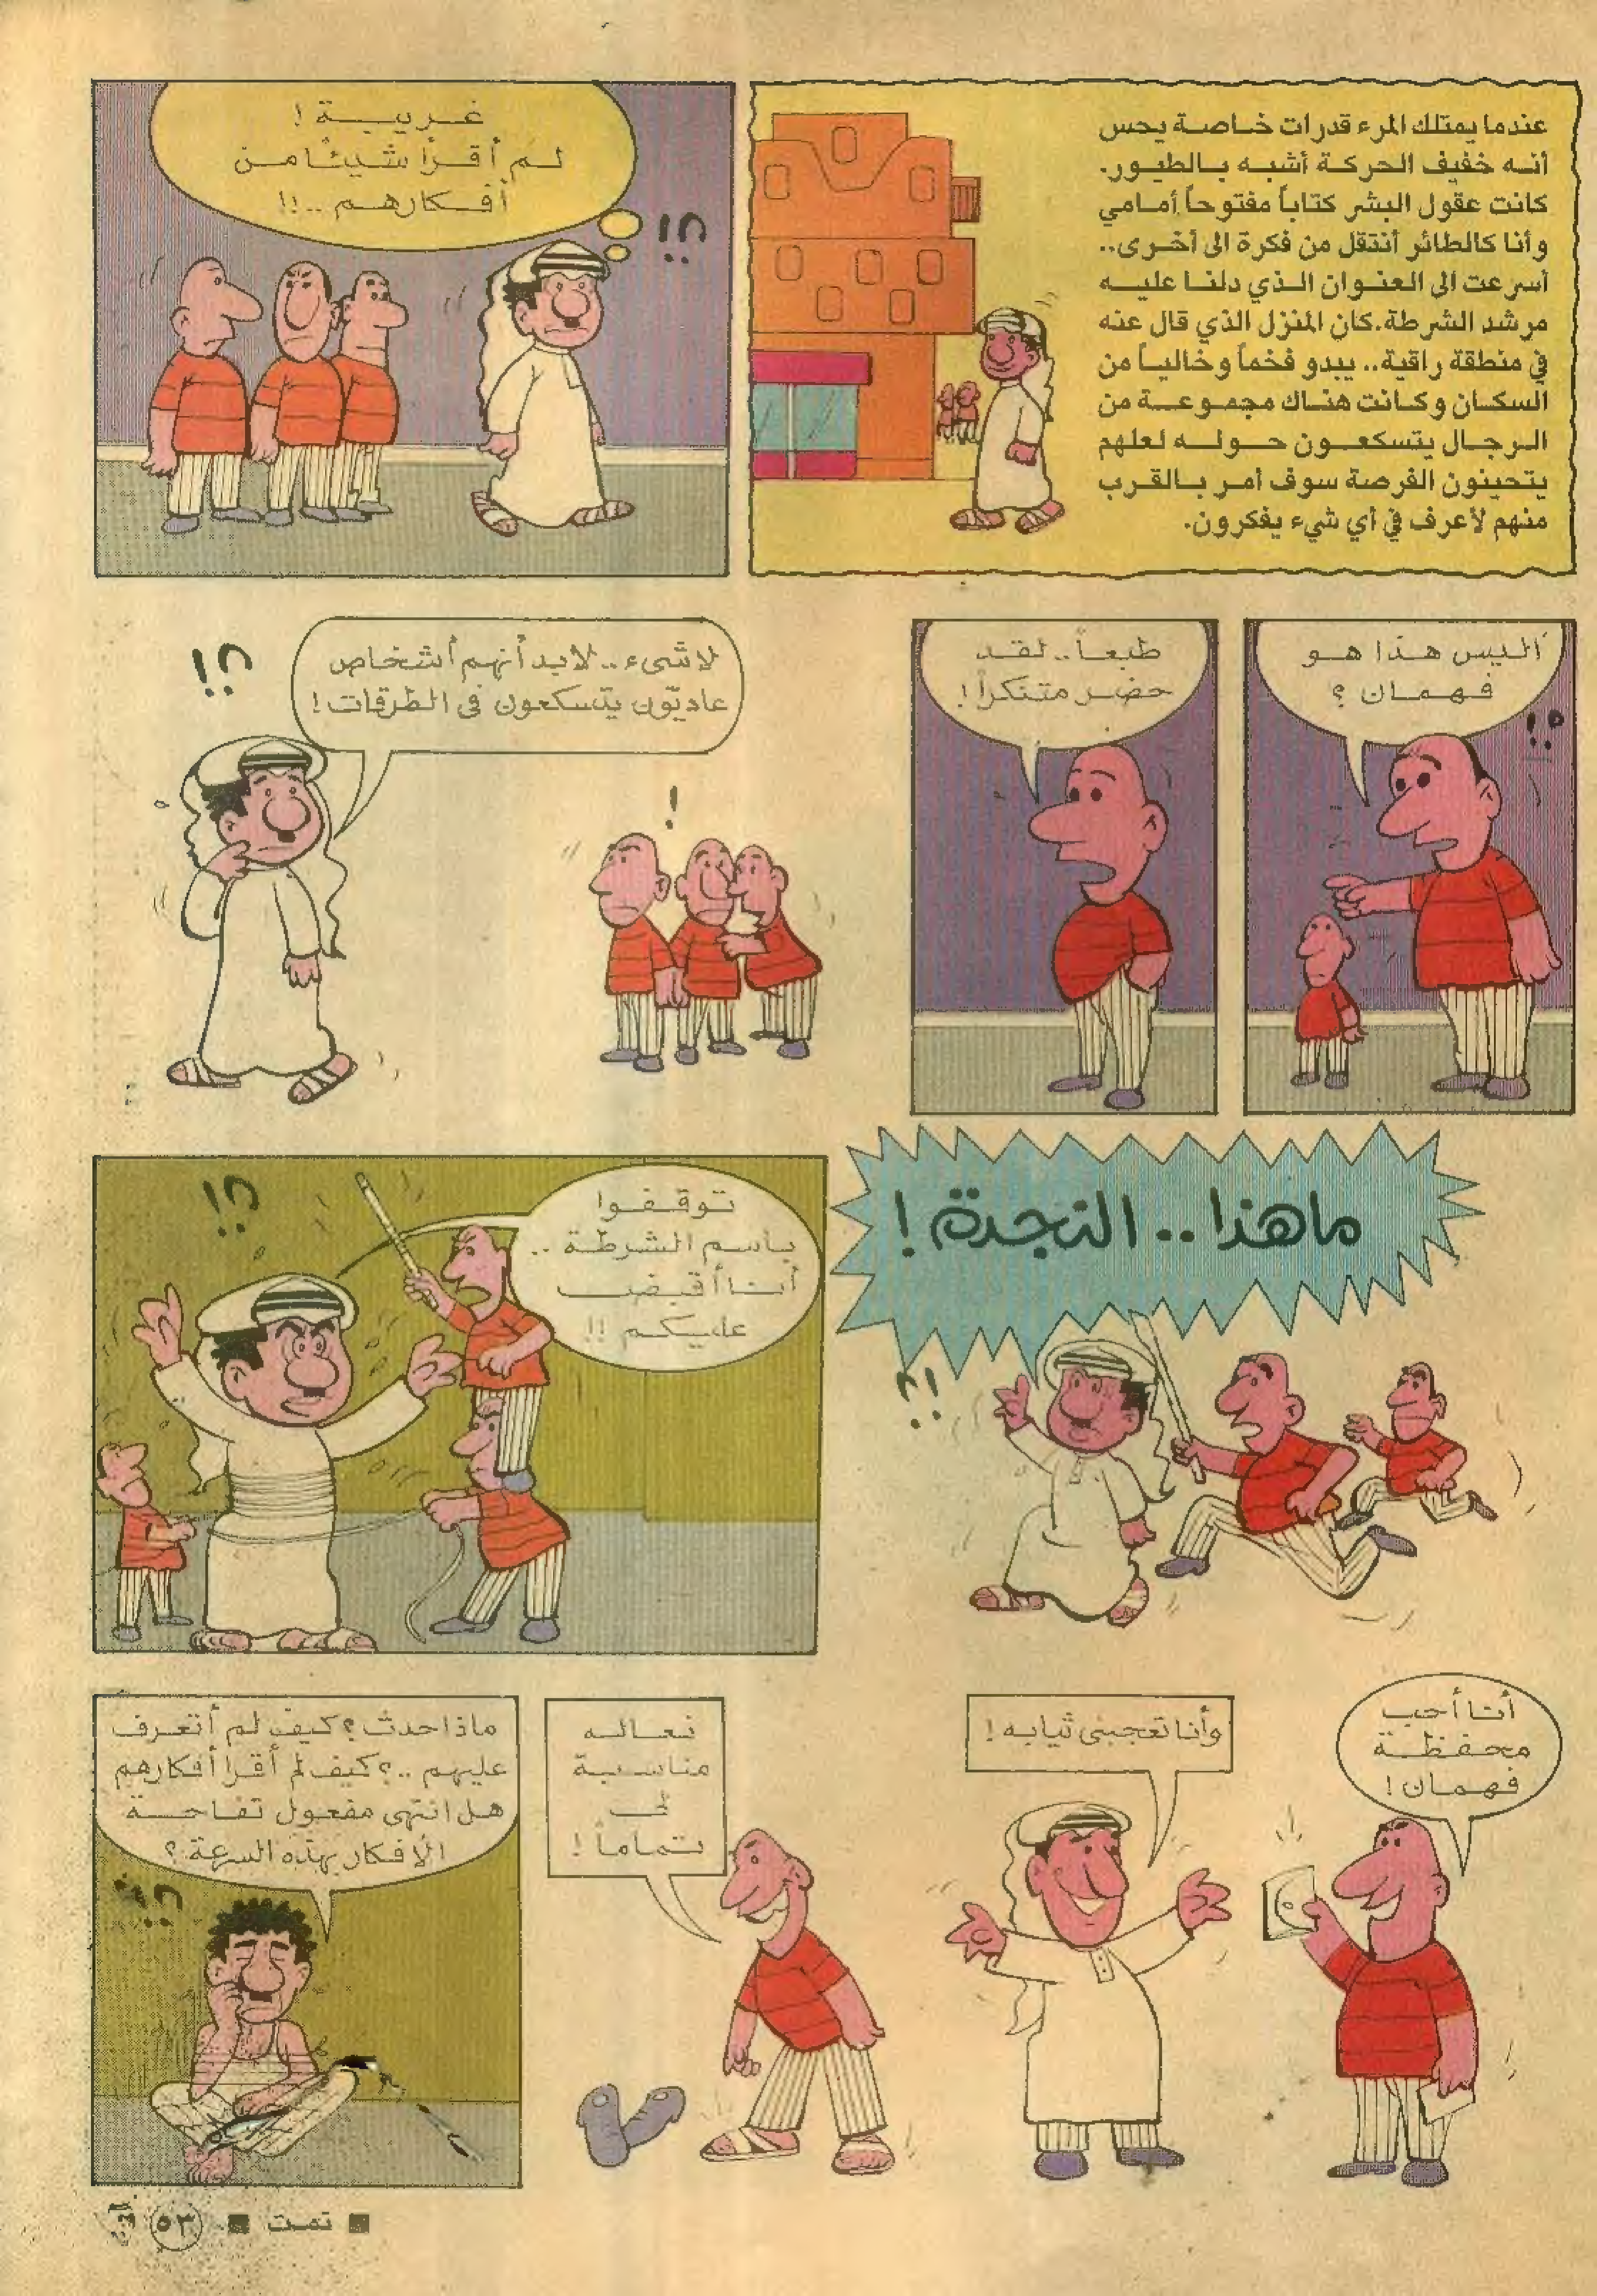 عندما يمتلك المرء قدرات خاصة يحس
أنه خفيف الحركة أشبه بالطيور.
كانت عقول البشر كتاباً مفتوحاً أمامي
وأنا كالطائر أنتقل من فكرة الى أخرى..
أسرعت الى العنوان الذي دلنا عليه
مرشد الشرطة.كان المنزل الذي قال عنه
في منطقة راقية.. يبدو فخماً وخالياً من
السكان وكانت هناك مجموعة من
الرجال يتسكعون حوله لعلهم
يتحينون الفرصة سوف أمر بالقرب
منهم لأعرف في أي شيء يفكرون.
غريبة !
لم أقرأ شيئاً من
أفكارهم ..!!
؟!
أليس هذا هو
فهمان ؟
طبعاً.. لقد
حضر متنكراً !
لا شىء .. لابد أنهم أشخاص
عاديّون يتسكعون فى الطرقات !
؟!
!
ما هذا .. النجدة !
؟!
توقفوا
باسم الشرطة ..
أنا أقبض
عليكم !!
؟!
أنا أحب
محفظة
فهمان !
وأنا تعجبنى ثيابه !
نعاله
مناسبة
لى
تماماً !
ماذا حدث ؟ كيف لم أتعرف
عليهم ..؟ كيف لم أقرأ أفكارهم
هل انتهى مفعول تفاحة
الأفكار بهذه السرعة ؟
؟!
■ تمت ■
٥٣